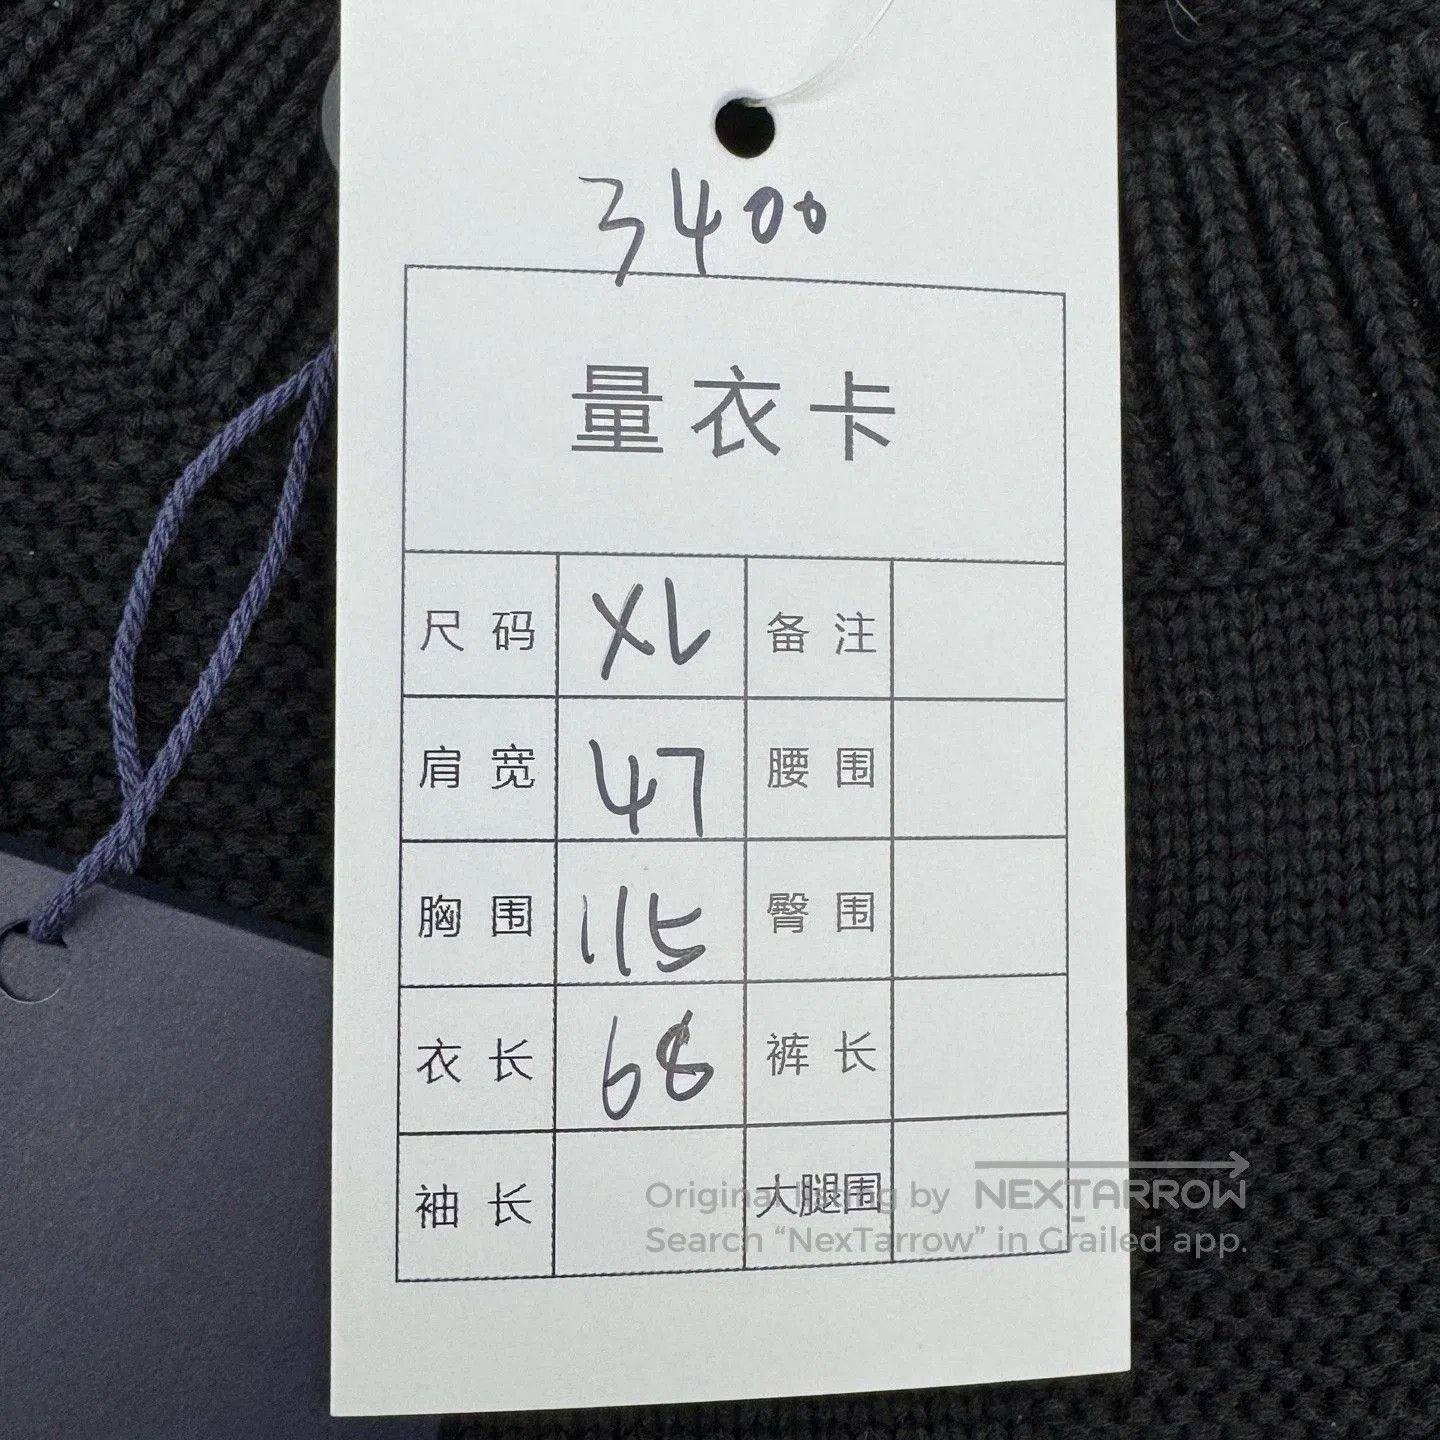 3400
量衣卡
尺码 XL 备注
肩宽 47 腰围
胸围 115 臀围
衣长 68 裤长
袖长 大腿围
Original listing by NEXTARROW
Search “NexTarrow” in Grailed app.